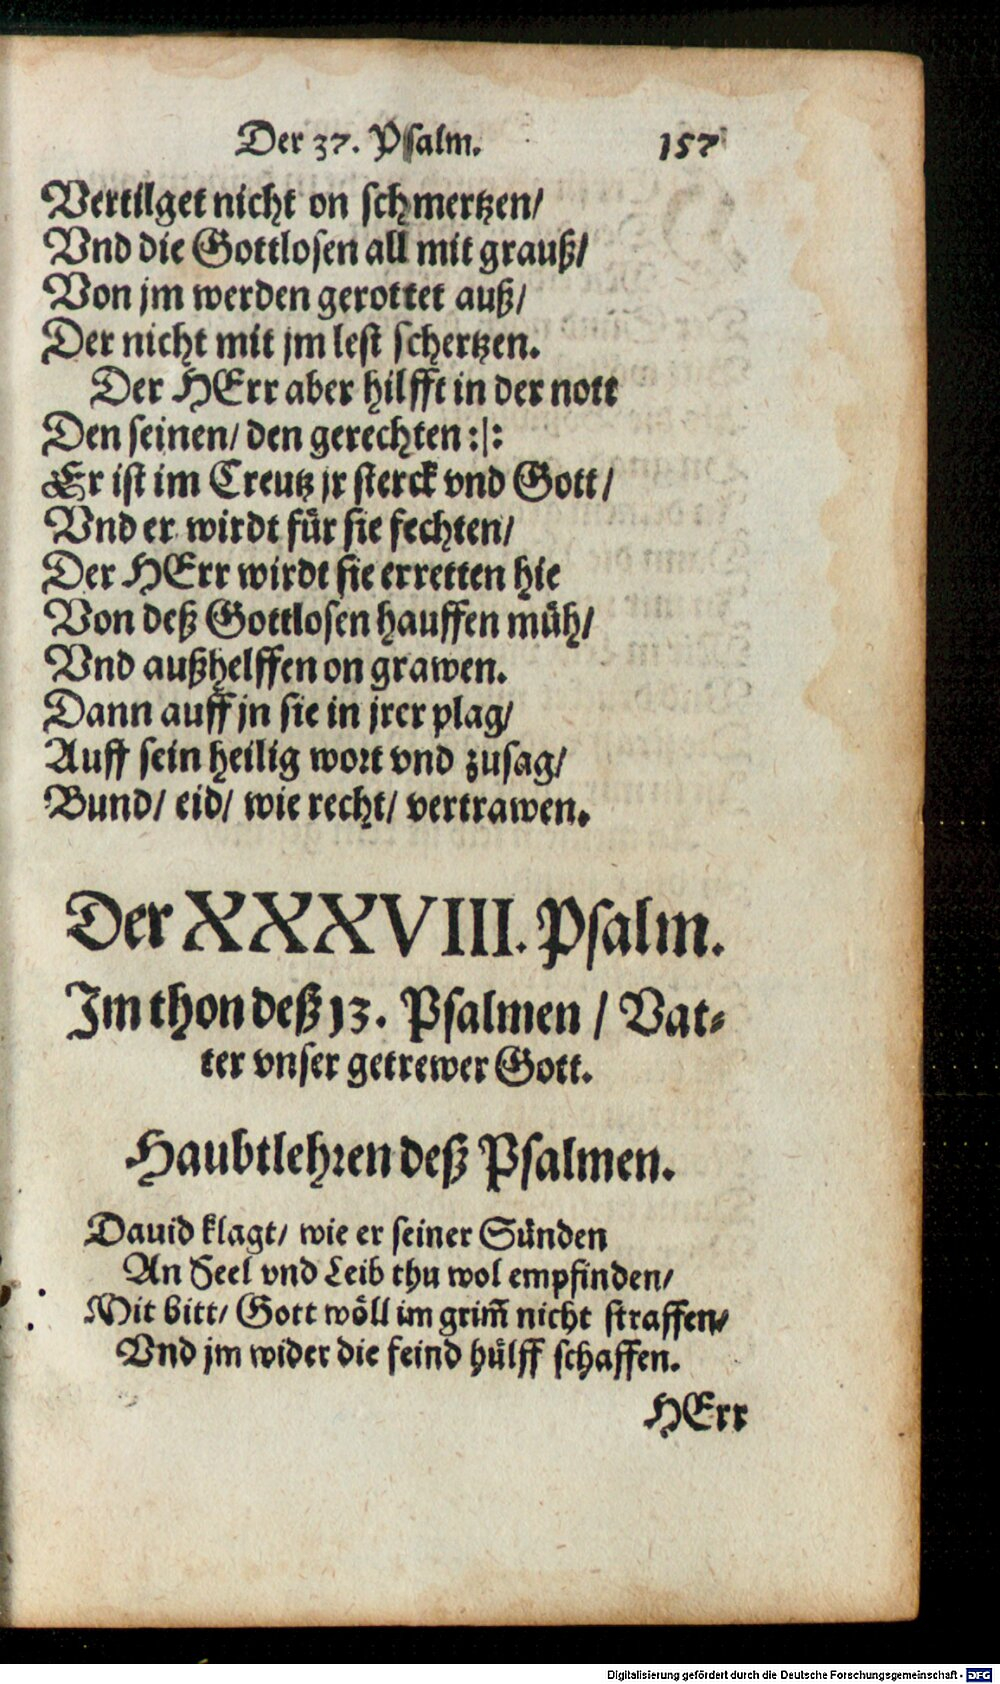 Der 37. Psalm. 157
Vertilget nicht on schmertzen/
Vnd die Gottlosen all mit grauß/
Von jm werden gerottet auß/
Der nicht mit jm lest schertzen.
Der HErr aber hilfft in der nott
Den seinen/ den gerechten :|:
Er ist im Creutz jr sterck vnd Gott/
Vnd er wirdt für sie fechten/
Der HErr wirdt sie erretten hie
Von deß Gottlosen hauffen müh/
Vnd außhelffen on grawen.
Dann auff jn sie in jrer plag/
Auff sein heilig wort vnd zusag/
Bund/ eid/ wie recht/ vertrawen.
Der XXXVIII. Psalm.
Im thon deß 13. Psalmen / Vat-
ter vnser getrewer Gott.
Haubtlehren deß Psalmen.
Dauid klagt/ wie er seiner Sünden
An Seel vnd Leib thu wol empfinden/
Mit bitt/ Gott wöll im grim̄ nicht straffen/
Vnd jm wider die feind hülff schaffen.
HErr
Digitalisierung gefördert durch die Deutsche Forschungsgemeinschaft - DFG